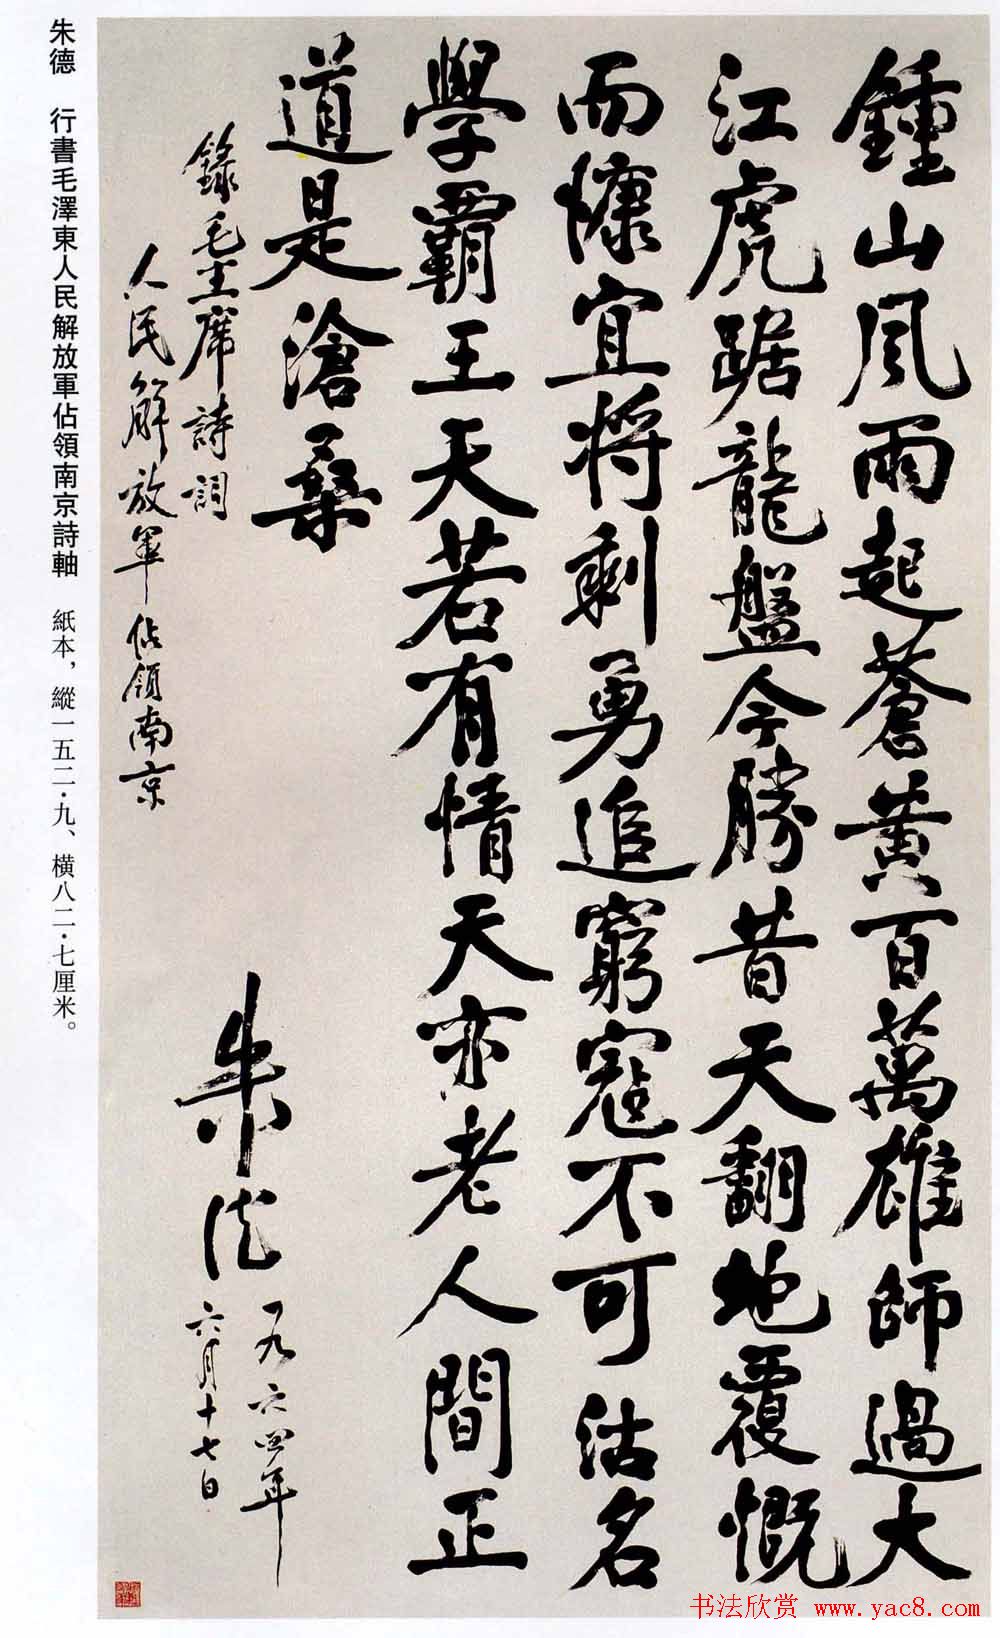 鍾山風雨起蒼黃百萬雄師過大
江虎踞龍盤今勝昔天翻地覆慨
而慷宜將剩勇追窮寇不可沽名
學霸王天若有情天亦老人間正
道是滄桑
錄毛主席詩詞
人民解放軍佔領南京
朱德
一九六四年
六月十七日
朱德 行書毛澤東人民解放軍佔領南京詩軸 紙本，縱一五二·九、橫八二·七厘米。
书法欣赏 www.yac8.com